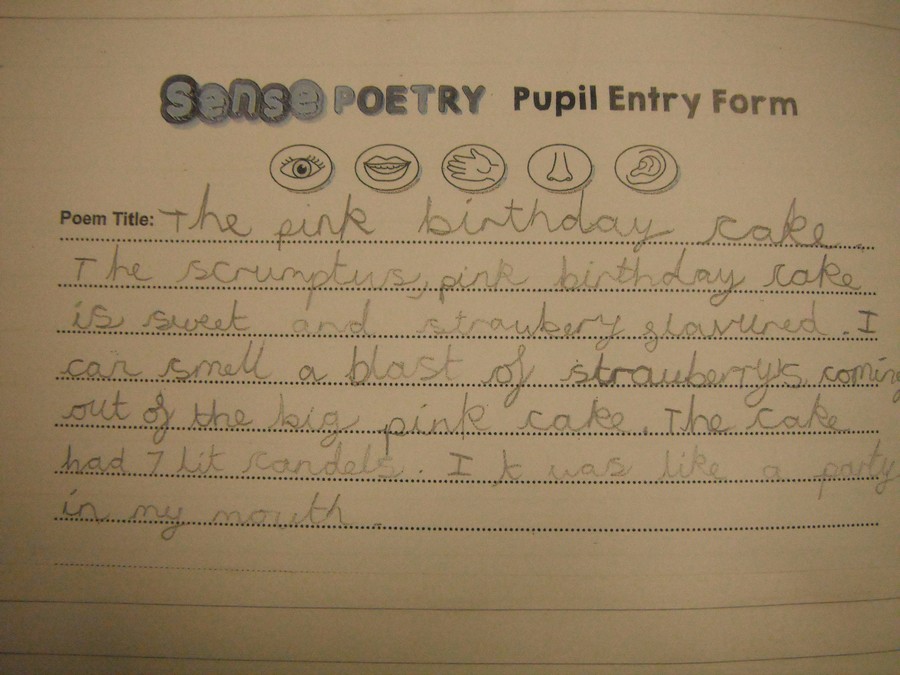 Sense POETRY Pupil Entry Form
Poem Title: The pink birthday cake.
The scrumptus, pink birthday cake
is sweet and strawbery flavured. I
can smell a blast of strawberry's coming
out of the big pink cake. The cake
had 7 lit candels. It was like a party
in my mouth.